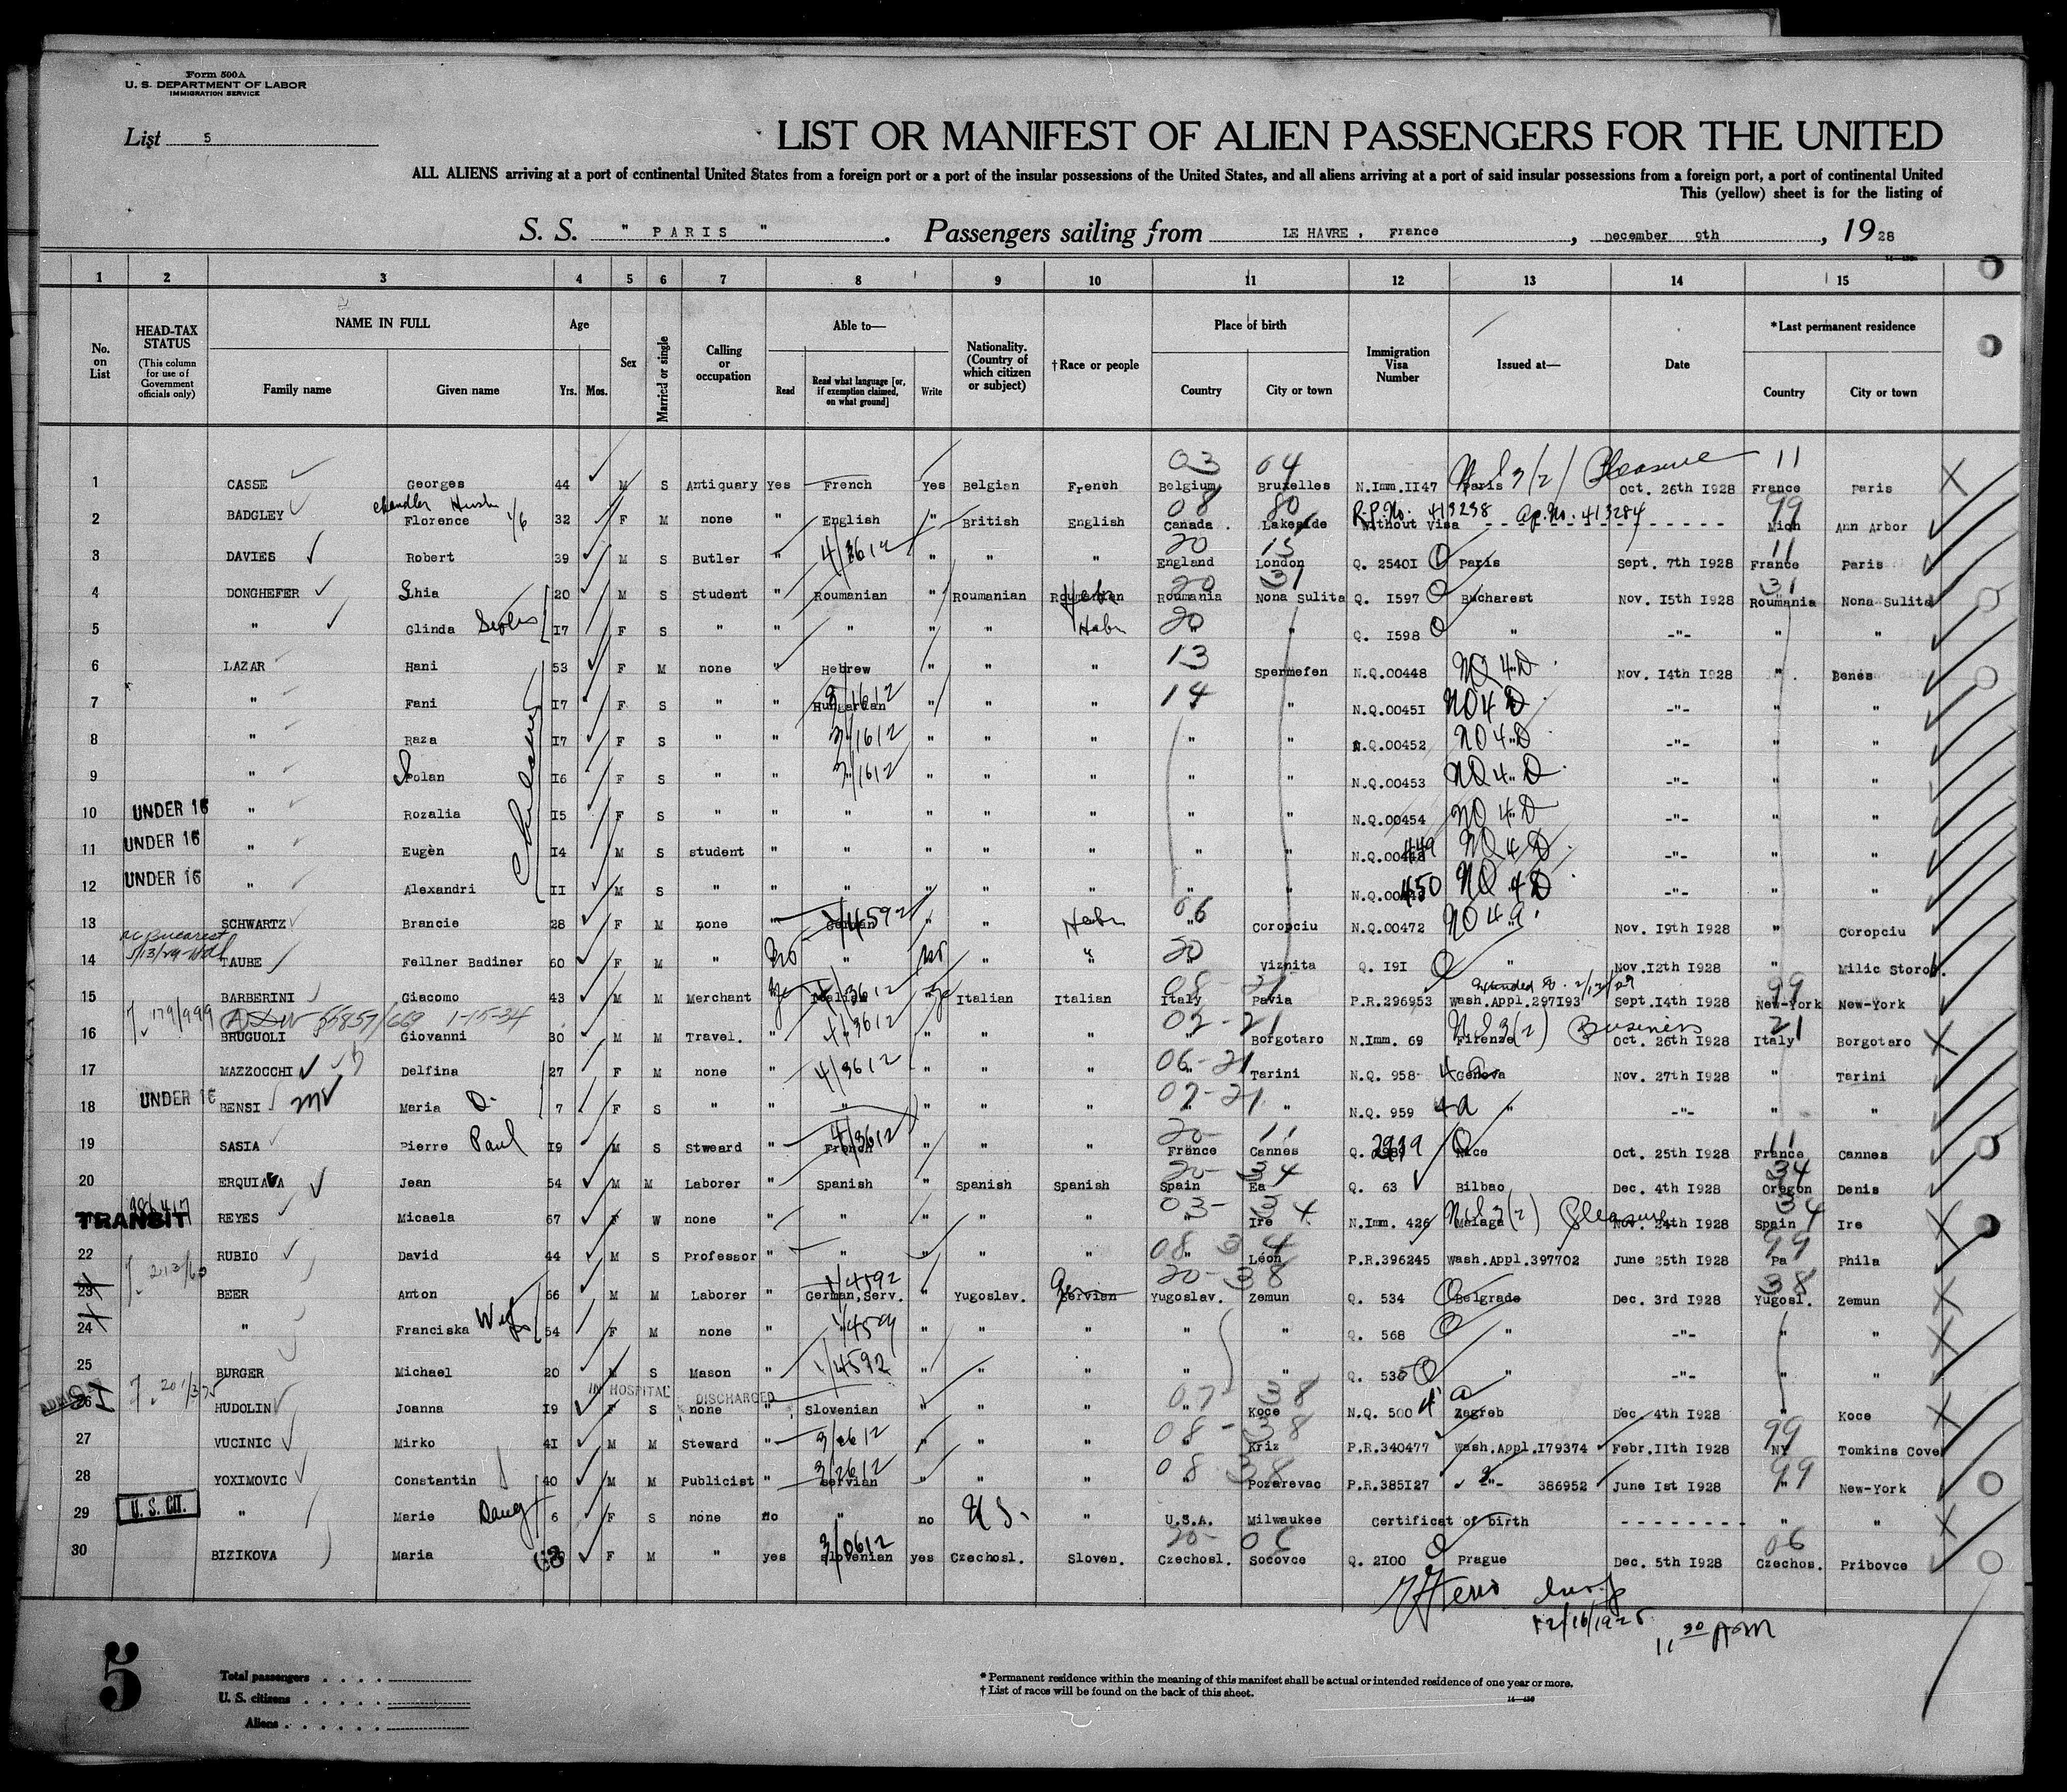 Form 500A
U. S. DEPARTMENT OF LABOR
IMMIGRATION SERVICE
List 5
LIST OR MANIFEST OF ALIEN PASSENGERS FOR THE UNITED
ALL ALIENS arriving at a port of continental United States from a foreign port or a port of the insular possessions of the United States, and all aliens arriving at a port of said insular possessions from a foreign port, a port of continental United
This (yellow) sheet is for the listing of
S. S. " PARIS " . Passengers sailing from LE HAVRE , France , December 9th , 1928
1 2 3 4 5 6 7 8 9 10 11 12 13 14 15
No. on List
HEAD-TAX STATUS (This column for use of Government officials only)
NAME IN FULL Family name Given name
Age Yrs. Mos.
Sex
Married or single
Calling or occupation
Able to— Read Read what language [or, if exemption claimed, on what ground] Write
Nationality. (Country of which citizen or subject)
†Race or people
Place of birth Country City or town
Immigration Visa Number
Issued at—
Date
*Last permanent residence Country City or town
03 04 3(2) Pleasure 11
1 CASSE Georges 44 M S Antiquary Yes French Yes Belgian French Belgium Bruxelles N.Imm.II47 Paris Oct. 26th I928 France Paris
Chandler 08 80 R.P.No. 413238 Ap.No. 413284 99
2 BADGLEY Florence 32 F M none " English " British English Canada Lakeside Without Visa Mich Ann Arbor
4/3612 20 15 11
3 DAVIES Robert 39 M S Butler " " " " England London Q. 2540I Paris Sept. 7th I928 France Paris
20 31 31
4 DONGHEFER Shia 20 M S Student " Roumanian " Roumanian Roumanian Hebr Roumania Nona Sulita Q. I597 Bucharest Nov. I5th I928 Roumania Nona Sulita
5 " Glinda I7 F S " " " " " Hebr 20 " " Q. I598 " -"- " "
13 NQ 4 D
6 LAZAR Hani 53 F M none " Hebrew " " " Spermefen N.Q.00448 Nov. I4th I928 " Benes
3/1612 14 NQ 4 D
7 " Fani I7 F S " " Hungarian " " " " N.Q.0045I -"- " "
8 " Raza I7 F S " " 3/1612 " " " " " N.Q.00452 NQ 4 D -"- " "
9 " Iolan I6 F S " " 3/1612 " " " " " N.Q.00453 NQ 4 D -"- " "
10 UNDER 16 " Rozalia I5 F S " " " " " " " " N.Q.00454 NQ 4 D -"- " "
11 UNDER 16 " Eugèn I4 M S student " " " " " " " N.Q.00449 NQ 4 D -"- " "
12 UNDER 16 " Alexandri II M S " " " " " " " " N.Q.00450 NQ 4 D -"- " "
1/4592 06 NQ 4 a
13 SCHWARTZ Brancie 28 F M none " German " " Hebr " Coropciu N.Q.00472 Nov. I9th I928 " Coropciu
20
14 TAUBE Fellner Badiner 60 F M " no " no " " Viznita Q. I9I " Nov.I2th I928 " Milic Storoj.
Extended to 99
15 BARBERINI Giacomo 43 M M Merchant Italian Italian Italian Italy Pavia P.R.296953 Wash.Appl.297I93 Sept.I4th I928 New-York New-York
179/999 1-15-34 4/3612 3(2) Business 21
16 BRUGUOLI Giovanni 30 M M Travel. " " " " " Borgotaro N.Imm. 69 Firenze Oct. 26th I928 Italy Borgotaro
4/3612 06-21
17 MAZZOCCHI Delfina 27 F M none " " " " " Tarini N.Q. 958 Genova Nov. 27th I928 " Tarini
07-21
18 UNDER 16 BENSI Maria 7 F S " " " " " " " " N.Q. 959 4 a " -"- " "
Paul 4/3612 20- 11 11
19 SASIA Pierre I9 M S Stweard " French " " " France Cannes Q. Nice Oct. 25th I928 France Cannes
20- 34 34
20 ERQUIAVA Jean 54 M M Laborer " Spanish " Spanish Spanish Spain Ea Q. 63 Bilbao Dec. 4th I928 Oregon Denis
03- 34 3(2) Pleasure 34
TRANSIT REYES Micaela 67 F W none " " " " " " Ire N.Imm. 426 Malaga Nov. 24th I928 Spain Ire
08 34 99
22 RUBIO David 44 M S Professor " " " " " " Léon P.R.396245 Wash.Appl.397702 June 25th I928 Pa Phila
213/60 1/4592 20- 38 38
23 BEER Anton 66 M M Laborer " German,Serv. " Yugoslav. Servian Yugoslav. Zemun Q. 534 Belgrade Dec. 3rd I928 Yugosl. Zemun
24 " Franciska Wife 54 F M none " " " " " " " Q. 568 " -"- " "
25 BURGER Michael 20 M S Mason " 1/4592 " " " " " Q. 535 " -"- " "
IN HOSPITAL DISCHARGED 07- 38 4 a
26 HUDOLIN Joanna I9 F S none " Slovenian " " " " Koce N.Q. 500 Zagreb Dec. 4th I928 " Koce
08- 38 99
27 VUCINIC Mirko 4I M M Steward " 3/2612 " " " " Kriz P.R.340477 Wash.Appl.I79374 Febr.IIth I928 NY Tomkins Cove
3/2612 08 38 99
28 YOXIMOVIC Constantin 40 M M Publicist " Servian " " " " Pozarevac P.R.385I27 -"- 386952 June Ist I928 " New-York
29 U. S. CIT. " Marie Daug 6 F S none no " no U S. " U.S.A. Milwaukee Certificat of birth " "
3/0612 20- 06 06
30 BIZIKOVA Maria F M " yes Slovenian yes Czechosl. Sloven. Czechosl. Socovce Q. 2I00 Prague Dec. 5th I928 Czechos. Pribovce
12/16/1928 11 30 AM
5
Total passengers
U. S. citizens
Aliens
* Permanent residence within the meaning of this manifest shall be actual or intended residence of one year or more.
† List of races will be found on the back of this sheet.